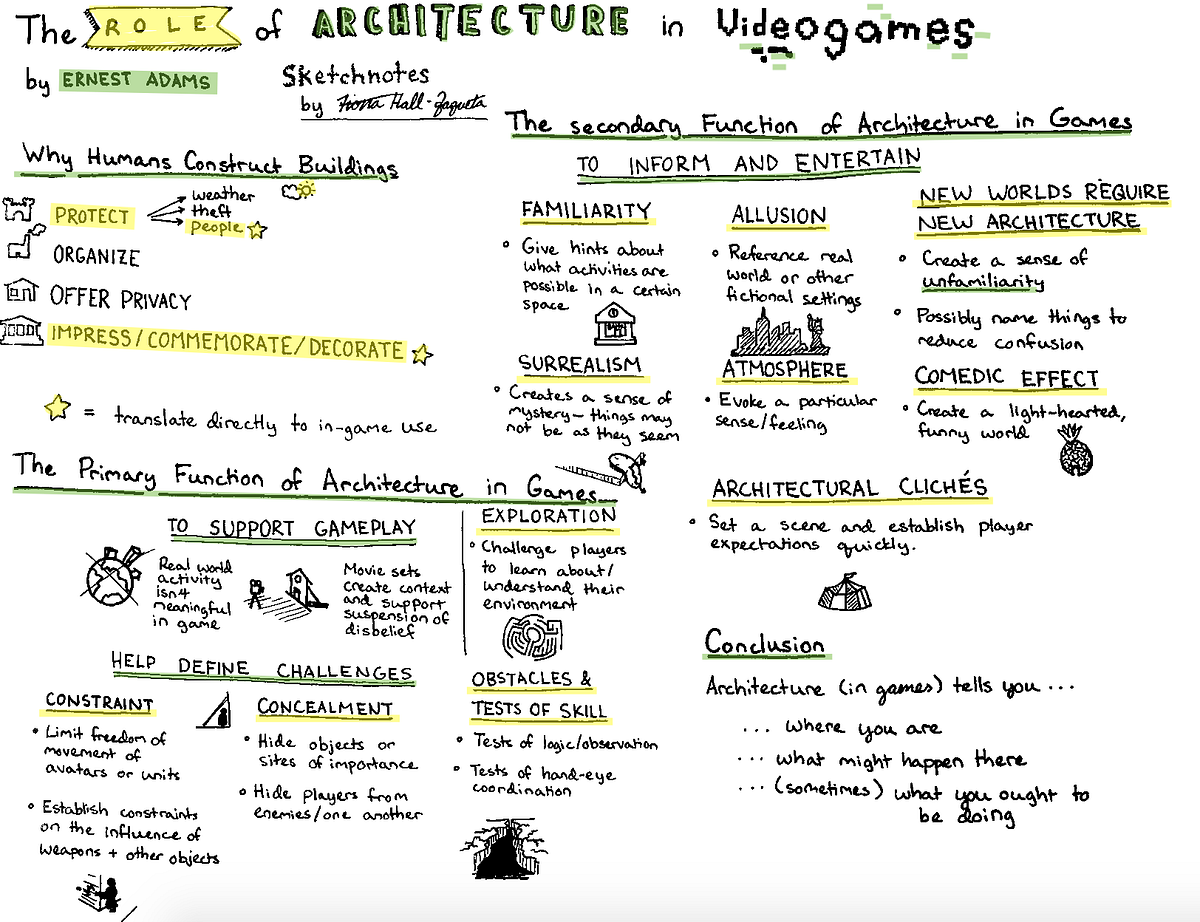 The ROLE of ARCHITECTURE in Videogames
by ERNEST ADAMS
Sketchnotes
by Fiona Hall-Zazueta
Why Humans Construct Buildings
PROTECT
weather
theft
people
ORGANIZE
OFFER PRIVACY
IMPRESS/COMMEMORATE/DECORATE
= translate directly to in-game use
The Primary Function of Architecture in Games
TO SUPPORT GAMEPLAY
Real world
activity
isn't
meaningful
in game
Movie sets
create context
and support
suspension of
disbelief
HELP DEFINE CHALLENGES
CONSTRAINT
• Limit freedom of
movement of
avatars or units
• Establish constraints
on the influence of
weapons + other objects
CONCEALMENT
• Hide objects or
sites of importance
• Hide players from
enemies/one another
EXPLORATION
• Challenge players
to learn about/
understand their
environment
OBSTACLES &
TESTS OF SKILL
• Tests of logic/observation
• Tests of hand-eye
coordination
The secondary Function of Architecture in Games
TO INFORM AND ENTERTAIN
FAMILIARITY
• Give hints about
what activities are
possible in a certain
space
ALLUSION
• Reference real
world or other
fictional settings
NEW WORLDS REQUIRE
NEW ARCHITECTURE
• Create a sense of
unfamiliarity
• Possibly name things to
reduce confusion
SURREALISM
• Creates a sense of
mystery - things may
not be as they seem
ATMOSPHERE
• Evoke a particular
sense/feeling
COMEDIC EFFECT
• Create a light-hearted,
funny world
ARCHITECTURAL CLICHÉS
• Set a scene and establish player
expectations quickly.
Conclusion
Architecture (in games) tells you ...
... where you are
... what might happen there
... (sometimes) what you ought to
be doing